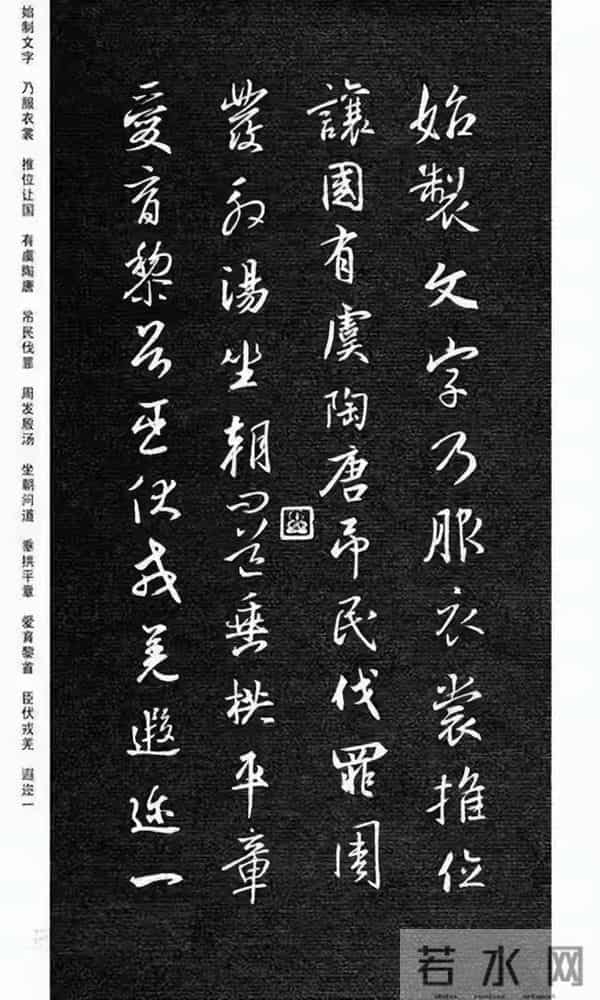 始製文字乃服衣裳推位
讓國有虞陶唐吊民伐罪周
發殷湯坐朝問道垂拱平章
愛育黎首臣伏戎羌遐迩一
始制文字 乃服衣裳 推位让国 有虞陶唐 吊民伐罪 周发殷汤 坐朝问道 垂拱平章 爱育黎首 臣伏戎羌 遐迩一
若水网